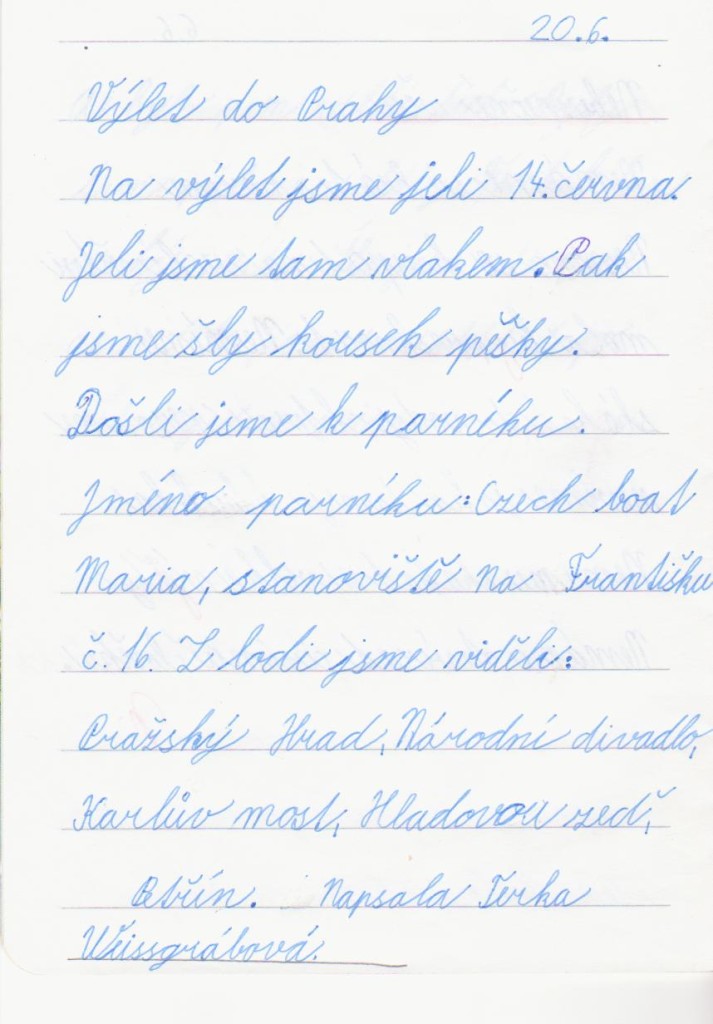 20.6.
Výlet do Prahy
Na výlet jsme jeli 14. června.
Jeli jsme tam vlakem. Pak
jsme šly kousek pěšky.
Došli jsme k parníku.
Jméno parníku: Czech boat
Maria, stanoviště Na Františku
č. 16. Z lodi jsme viděli:
Pražský Hrad, Národní divadlo,
Karlův most, Hladovou zeď,
Petřín. Napsala Terka
Weissgrábová.